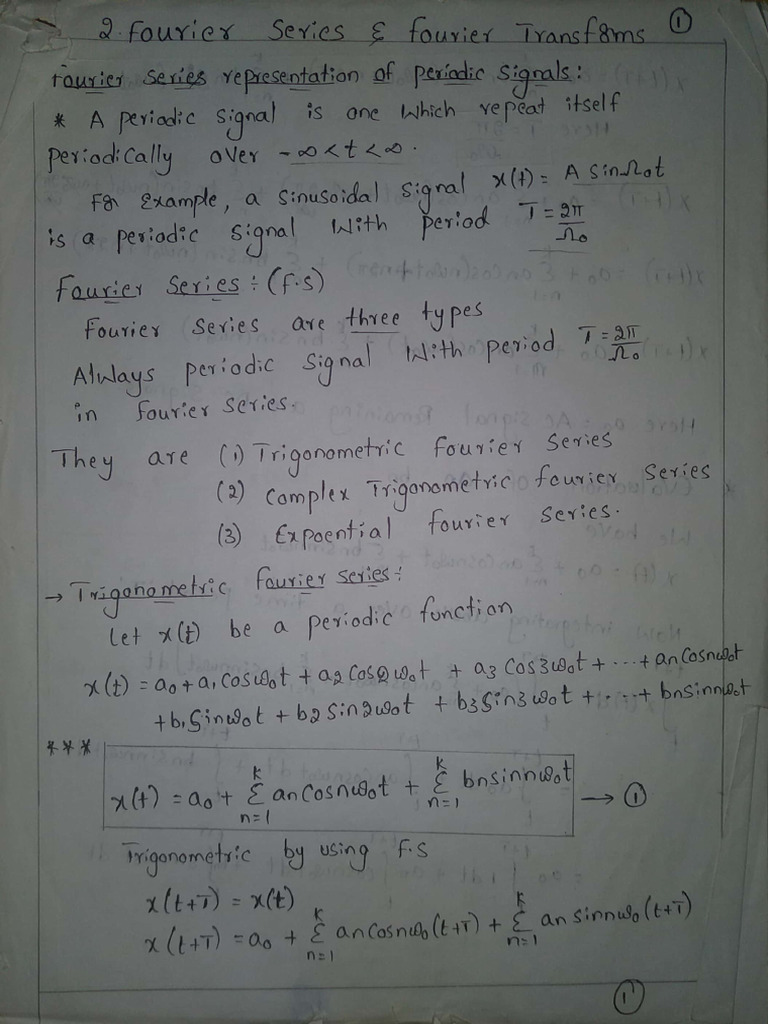 2. Fourier Series & Fourier Transforms ①
Fourier series representation of periodic signals:
* A periodic signal is one which repeat itself
periodically over -∞<t<∞.
For Example, a sinusoidal signal x(t) = A sinΩ0t
is a periodic signal With period T = 2π/Ω0
Fourier Series : (F.S)
Fourier series are three types
Always periodic signal With period T = 2π/Ω0
in fourier series.
They are (1) Trigonometric Fourier series
(2) Complex Trigonometric fourier series
(3) Expoential fourier series.
→ Trigonometric Fourier series:
Let x(t) be a periodic function
x(t) = a0 + a1 cosω0t + a2 cos2ω0t + a3 cos3ω0t + ... + an cosnω0t
+ b1 sinω0t + b2 sin2ω0t + b3 sin3ω0t + ... + bn sinnω0t
*** x(t) = a0 + Σ_{n=1}^{k} an cosnω0t + Σ_{n=1}^{k} bn sinnω0t → ①
Trigonometric by using F.S
x(t+T) = x(t)
x(t+T) = a0 + Σ_{n=1}^{k} an cosnω0(t+T) + Σ_{n=1}^{k} an sinnω0(t+T)
①